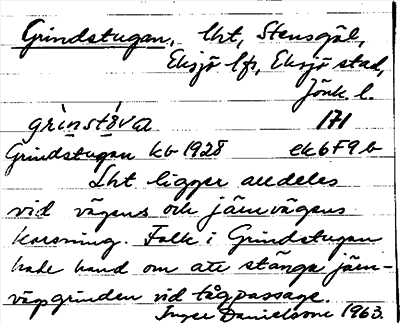 Grindstugan, lht, Stensgöl,
Eksjö lfs, Eksjö stad,
Jönk. l.
grìnstúva 171
Grindstugan kb 1928 ek6F9b
Lht ligger alldeles
vid vägens och järnvägens
korsning. Folk i Grindstugan
hade hand om att stänga järn-
vägsgrinden vid tågpassage.
Inger Danielsson 1963.